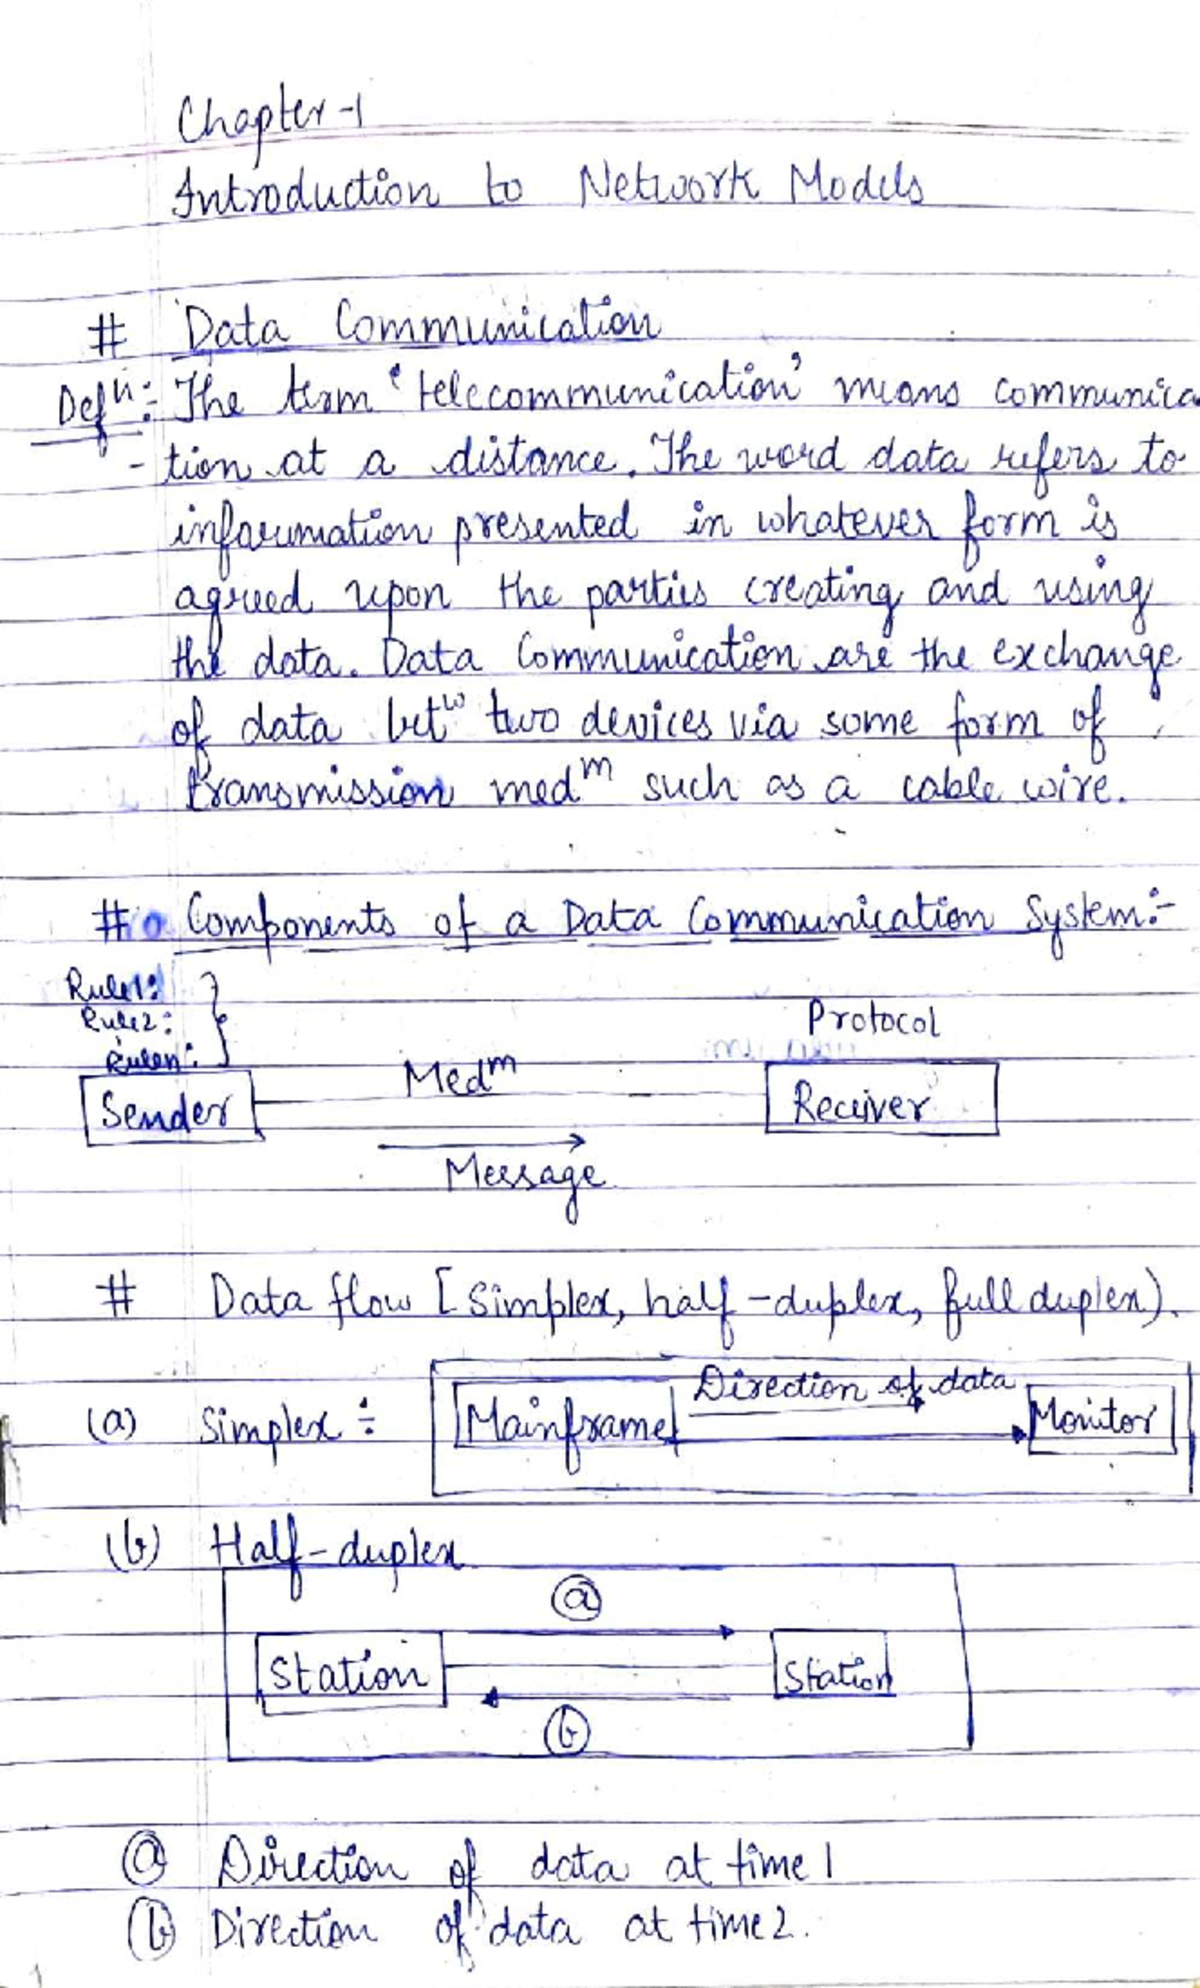 Chapter-1
Introduction to Network Models
# Data Communication
Defⁿ: The term 'telecommunication' means communica
- tion at a distance. The word data refers to
information presented in whatever form is
agreed upon the parties creating and using
the data. Data Communication are the exchange
of data betʷ two devices via some form of
transmission medᵐ such as a cable wire.
# Components of a Data Communication System:-
Rule1:
Rule2:
Rulen:
Protocol
Medᵐ
Sender
Receiver
Message
# Data flow [Simplex, half-duplex, full duplex).
Direction of data
(a) Simplex :- Mainframe Monitor
(b) Half-duplex
ⓐ
Station Station
ⓑ
ⓐ Direction of data at time 1
ⓑ Direction of data at time 2.